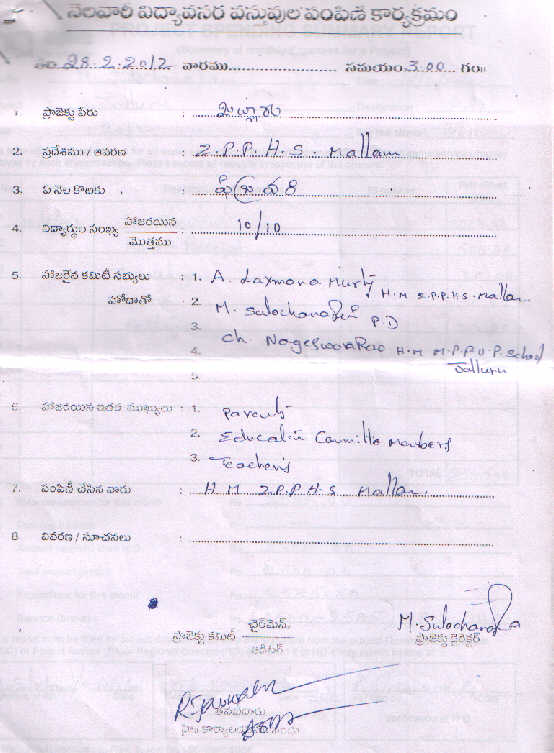 నెలవారీ విద్యావసర వస్తువుల పంపిణీ కార్యక్రమం
28.2.2012 వారము సమయం 3.00 గం॥
1. ప్రాజెక్టు పేరు :
2. ప్రదేశము / ఆవరణ : Z.P.P.H.S. Mallam
3. ఏ నెల కొరకు : ఫిబ్రవరి
4. విద్యార్థుల సంఖ్య హాజరయిన / మొత్తము : 10/10
5. హాజరైన కమిటీ సభ్యులు : 1. A. Laxmana Murty H.M Z.P.P.H.S. Mallam
హోదాతో 2. M. Sulochana P.D
3. Ch. Nageswara Rao H.M M.P.P.U.P. School
4.
5.
6. హాజరయిన ఇతర ముఖ్యులు : 1. Parents
2. Education Committe Members
3. Teachers
7. పంపిణీ చేసిన వారు : H.M Z.P.P.H.S Mallam.
8 వివరణ / సూచనలు :
ప్రాజెక్టు కమిటీ ఛైర్మెన్ M. Sulochana
ప్రాజెక్టు డైరెక్టర్